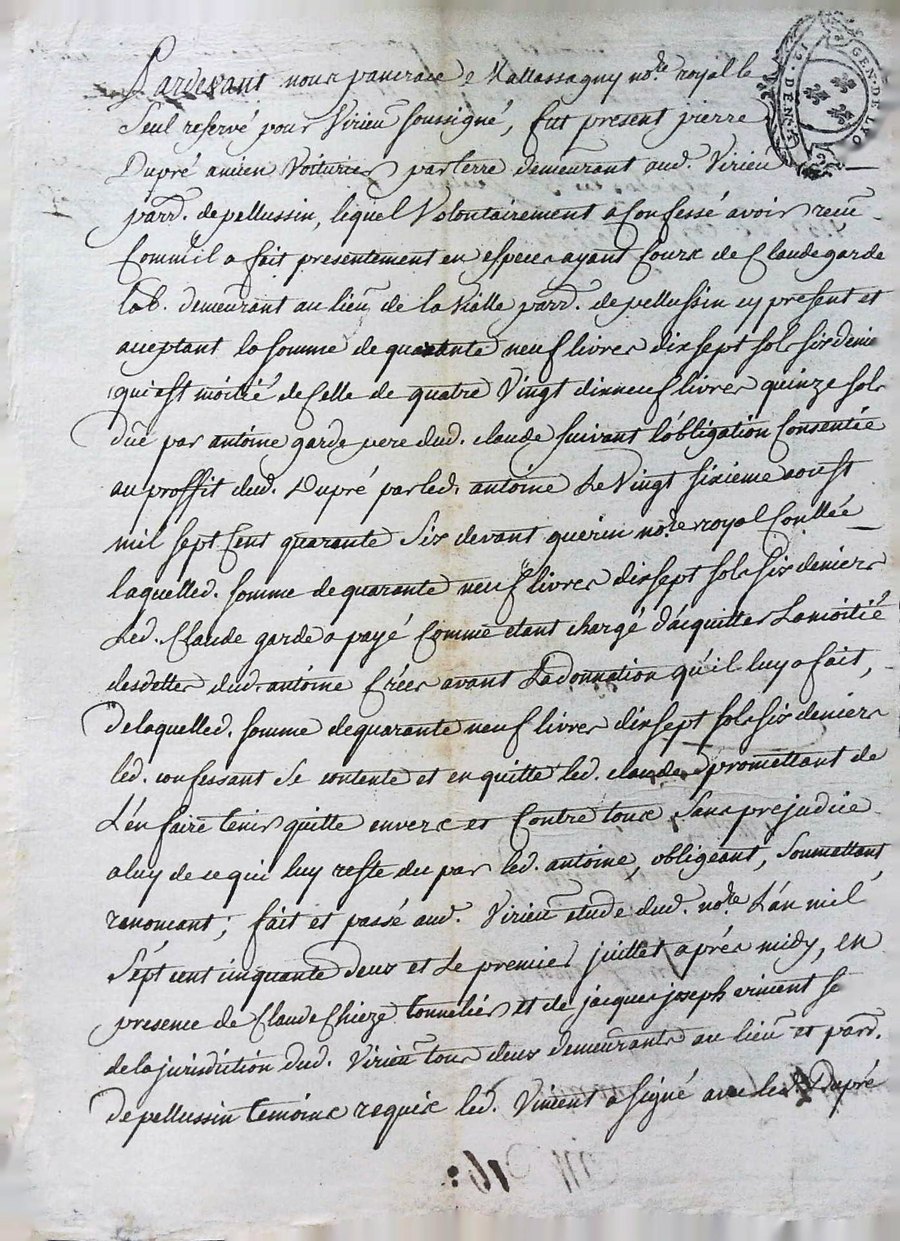 GEN·DE·LYO
12·DENS
Pardevant nous pancrace Mallassagny no.re royal le
Seul reservé pour Virieu soussigné, fut present pierre
Dupré ancien Voiturier par terre demeurant aud. Virieu
parr. de pellussin, lequel Volontairement a Confessé avoir receu
Comm'il a fait presentement en especes ayant Cours de Claude garde
lab. demeurant au lieu de la Vialle parr. de pellussin cy present et
acceptant la somme de quarante neuf livres dix sept sols six denie
qui est moitié de Celle de quatre Vingt dixneuf livres quinze sols
düe par antoine garde pere dud. claude suivant l'obligation Consentie
au proffit dud. Dupré par led. antoine Le Vingt sixieme aoust
mil sept Cent quarante Six devant guerin no.re royal Conllée
laquelled. somme de quarante neuf livres dixsept sols six deniers
Led. Claude garde a payé Comme etant chargé d'acquitter La moitié
des dettes dud. antoine Créés avant La donnation qu'il luy a fait,
de laquelled. somme de quarante neuf livres dixsept sols six deniers
led. confessant se contente et en quitte led. claude promettant de
L'en faire tenir quitte envers et Contre tous Sans prejudice
a luy de ce qui luy reste du par led. antoine, obligeant, soumettant
renoncant; fait et passé aud. Virieu etude dud. no.re L'an mil
Sept cent cinquante deux et Le premier juillet aprés midy, en
presence de Claude Chieze tonnelier et de jacques joseph vincent se
de la jurisdiction dud. Virieu tous deux demeurants au lieu et parr.
de pellussin temoins requis led. Vincent a signé avec led. Dupré